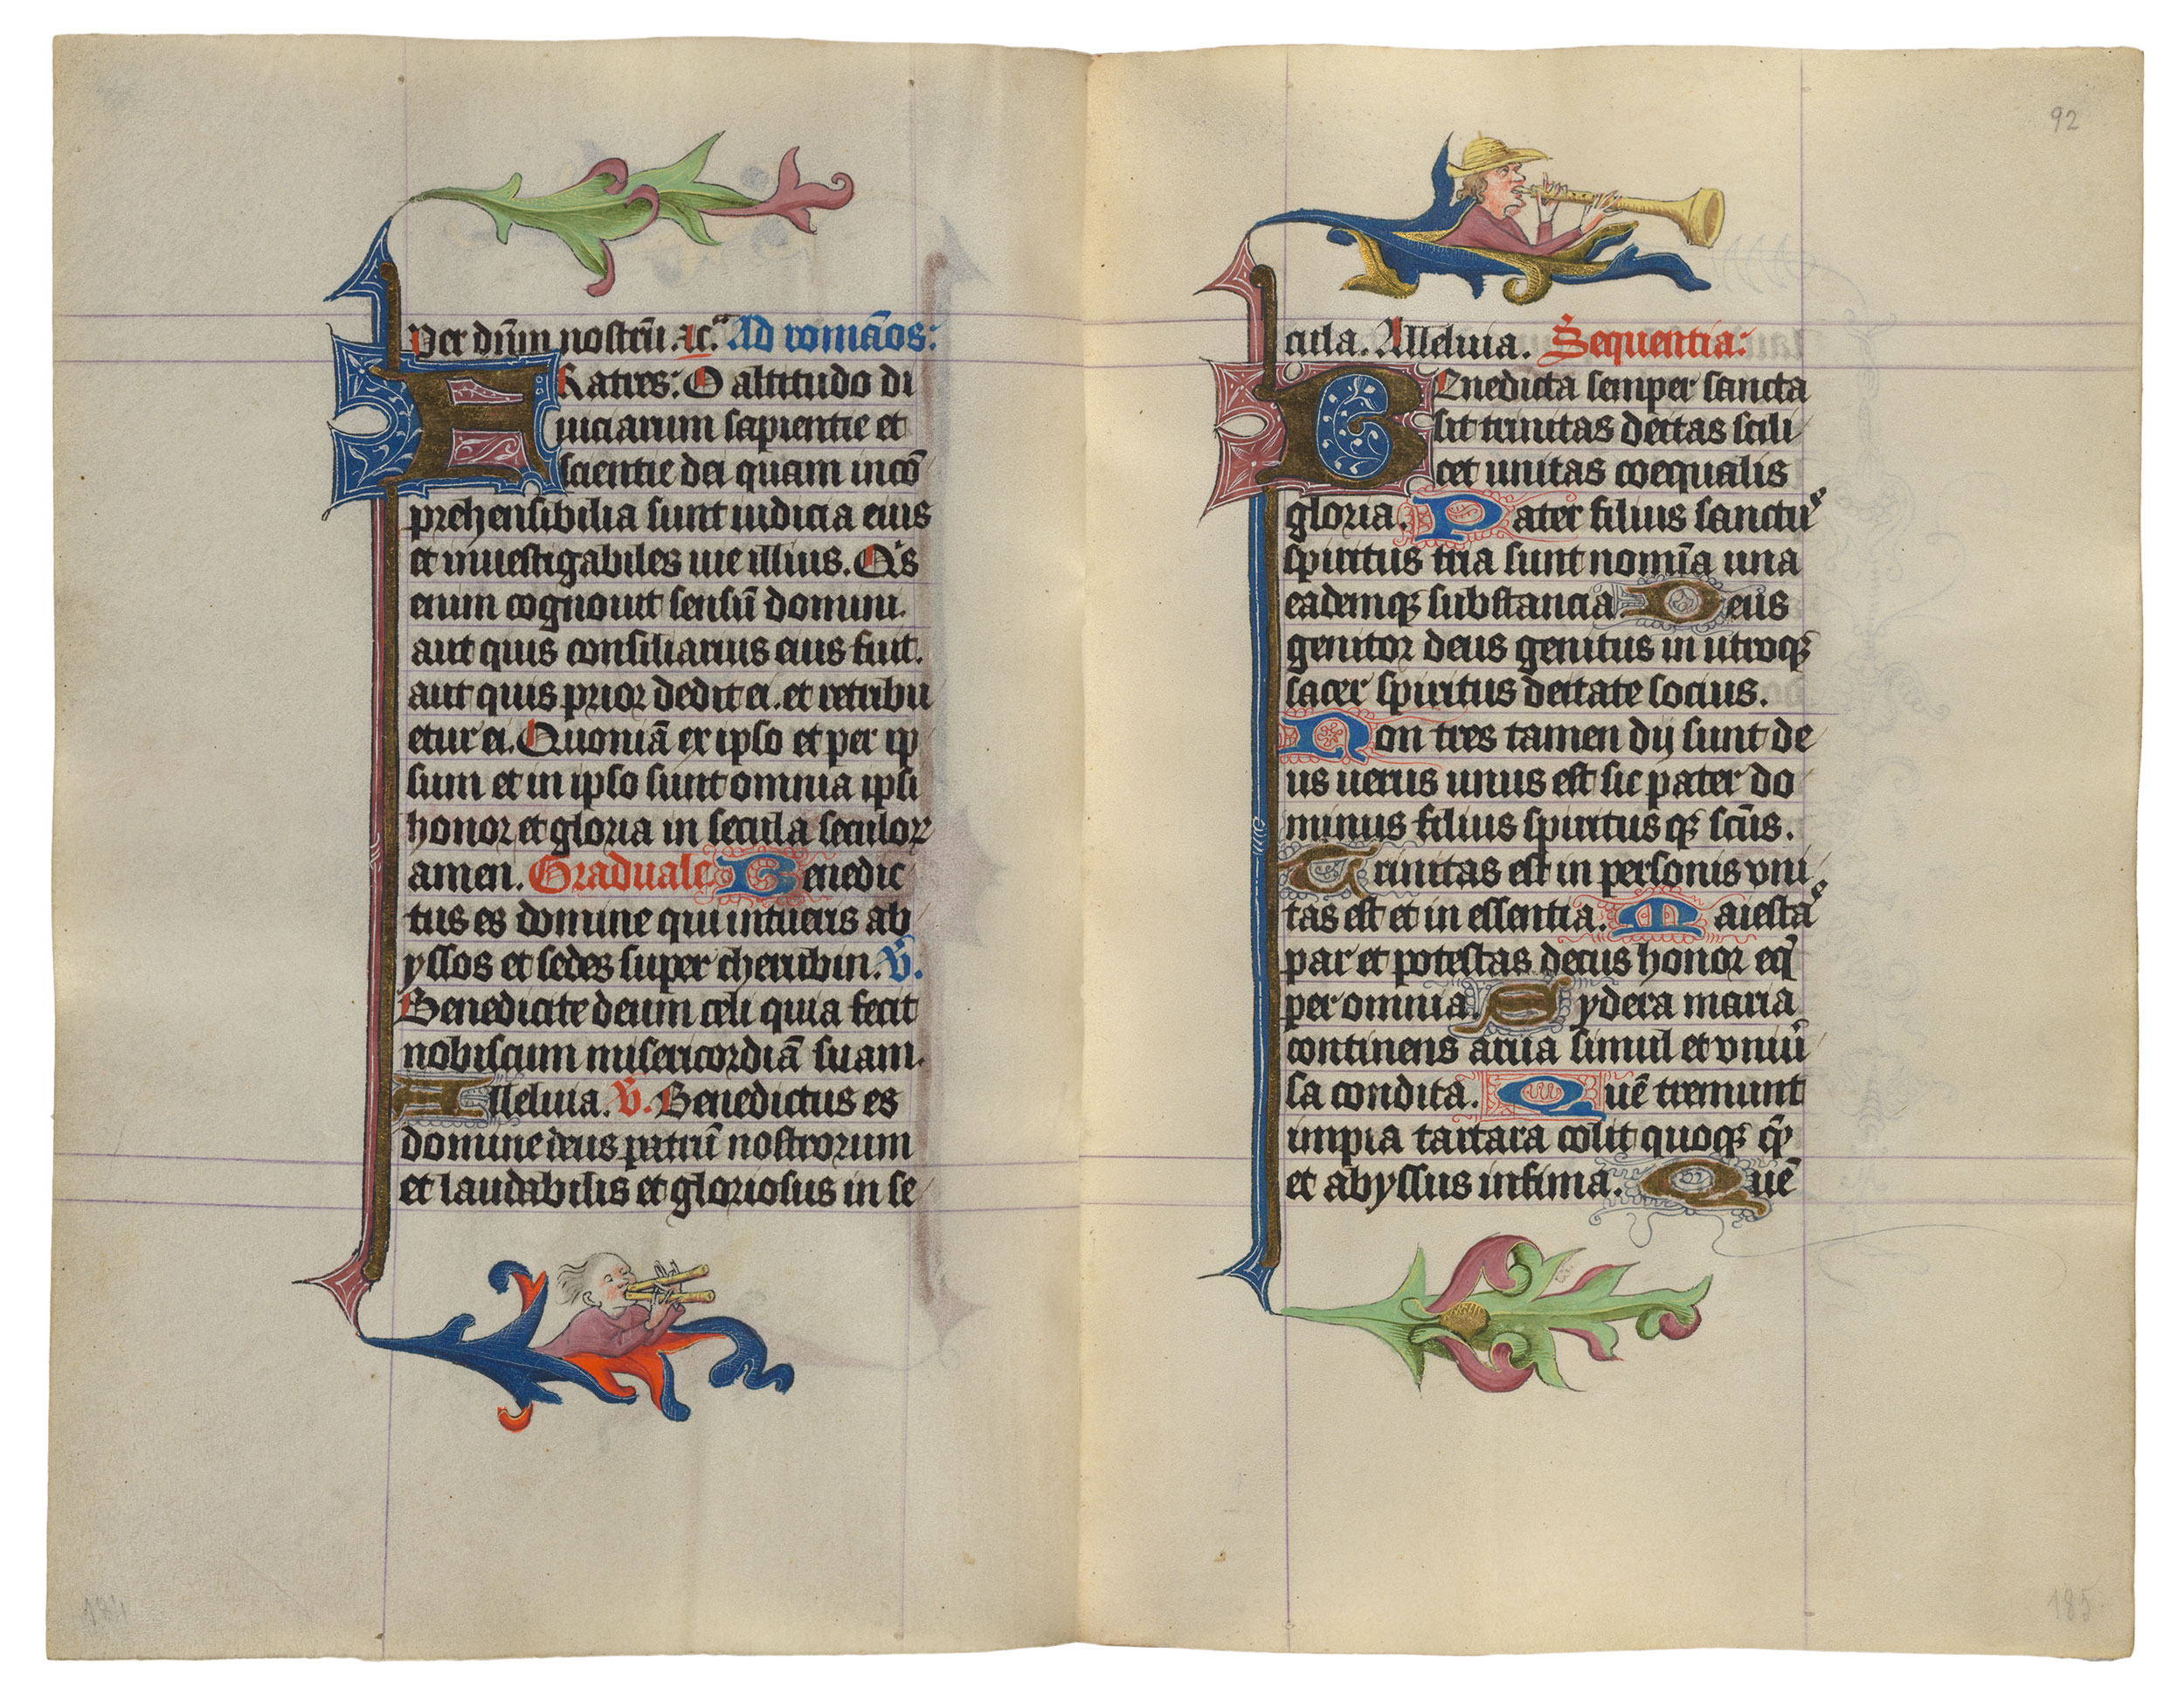 Per dn̄m nostrū. ⁊c̄. Ad romāos:
FRatres: O altitudo di
uiciarum sapientie et
scientie dei quam incō
prehensibilia sunt iudicia eius
et inuestigabiles uie illius. Qi̾s
enim cognouit sensū domini.
aut quis consiliarius eius fuit.
aut quis prior dedit ei. et retribu
etur ei. Quoniā ex ipso et per ip
sum et in ipso sunt omnia ipsi
honor et gloria in secula seculoꝝ
amen. Graduale Benedic
tus es domine qui intueris ab
yssos et sedes super cherubin. V̄.
Benedicite deum celi quia fecit
nobiscum misericordiā suam.
Alleluia. V̄. Benedictus es
domine deus patrū nostrorum
et laudabilis et gloriosus in se
92
cula. Alleluia. Sequentia:
BEnedicta semper sancta
sit trinitas deitas scili
cet unitas coequalis
gloria. Pater filius sanctuˢ
spiritus tria sunt nomīa una
eademqꝫ substancia Deus
genitor deus genitus in utroqꝫ
sacer spiritus deitate socius.
Non tres tamen dij sunt de
us uerus unus est sic pater do
minus filius spiritusqꝫ sc̄us.
Trinitas est in personis vni
tas est et in essentia. Maiestaˢ
par et potestas decus honor eqꝫ
per omnia. Sydera maria
continens arua simul et vniū̾
sa condita. Quē tremunt
impia tartara colit quoqꝫ qꝫ̄
et abyssus infima. Quē
184
185